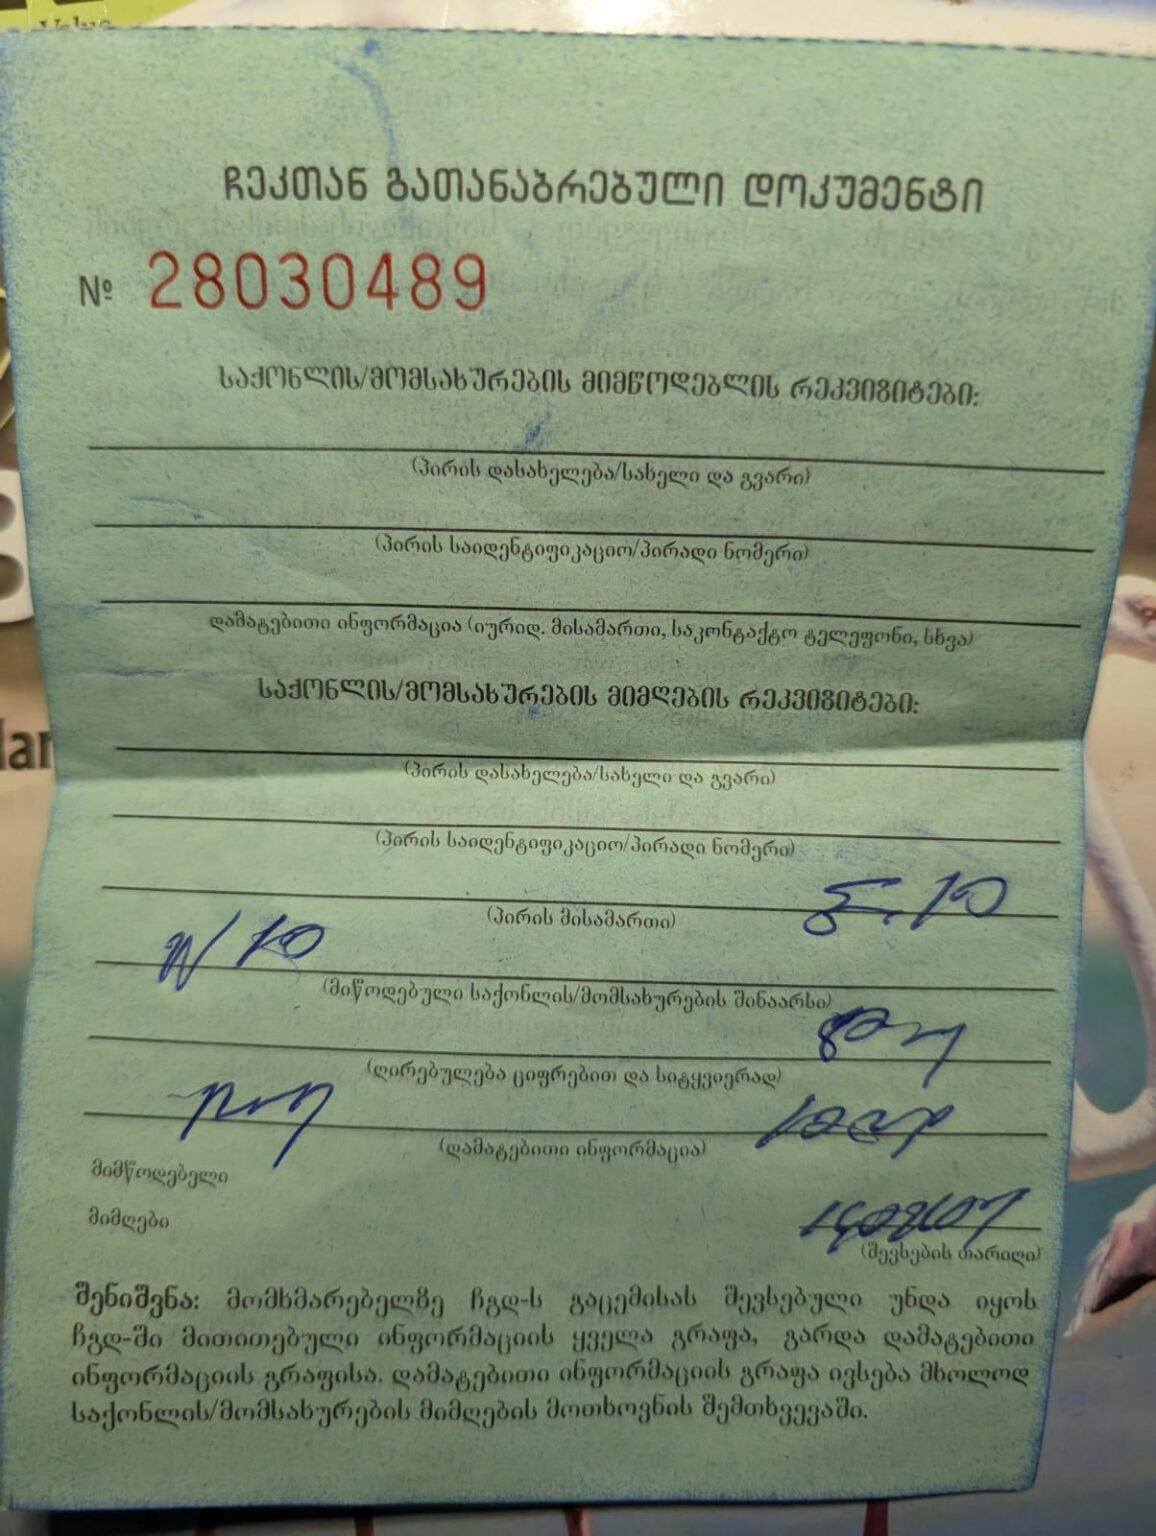 ჩეკთან გათანაბრებული დოკუმენტი
№ 28030489
საქონლის/მომსახურების მიმწოდებლის რეკვიზიტები:
(პირის დასახელება/სახელი და გვარი)
(პირის საიდენტიფიკაციო/პირადი ნომერი)
დამატებითი ინფორმაცია (იურიდ. მისამართი, საკონტაქტო ტელეფონი, სხვა)
საქონლის/მომსახურების მიმღების რეკვიზიტები:
(პირის დასახელება/სახელი და გვარი)
(პირის საიდენტიფიკაციო/პირადი ნომერი)
(პირის მისამართი)
(მიწოდებული საქონლის/მომსახურების შინაარსი)
(ღირებულება ციფრებით და სიტყვიერად)
(დამატებითი ინფორმაცია)
მიმწოდებელი
მიმღები
(შევსების თარიღი)
შენიშვნა: მომხმარებელზე ჩგდ-ს გაცემისას შევსებული უნდა იყოს
ჩგდ-ში მითითებული ინფორმაციის ყველა გრაფა, გარდა დამატებითი
ინფორმაციის გრაფისა. დამატებითი ინფორმაციის გრაფა ივსება მხოლოდ
საქონლის/მომსახურების მიმღების მოთხოვნის შემთხვევაში.